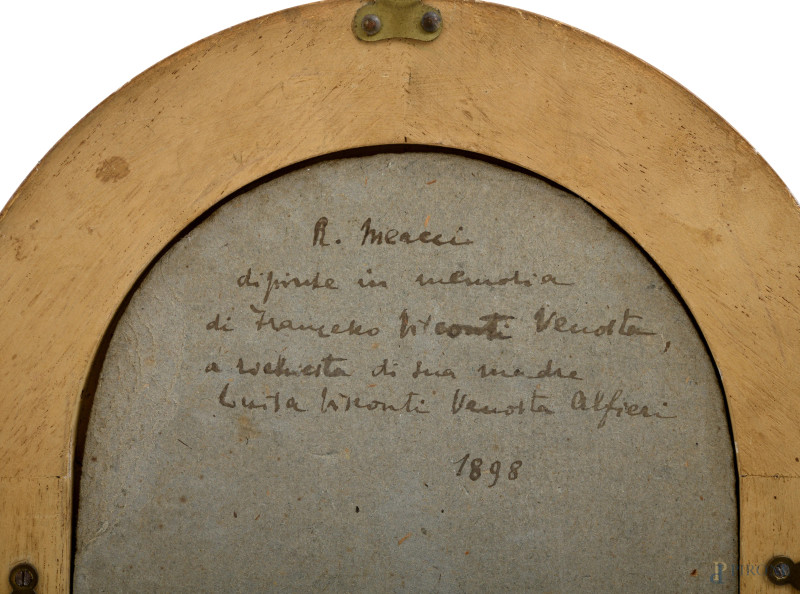 R. Meacci
dipinse in memoria
di Francesco Visconti Venosta,
a richiesta di sua madre
Luisa Visconti Venosta Alfieri
1898